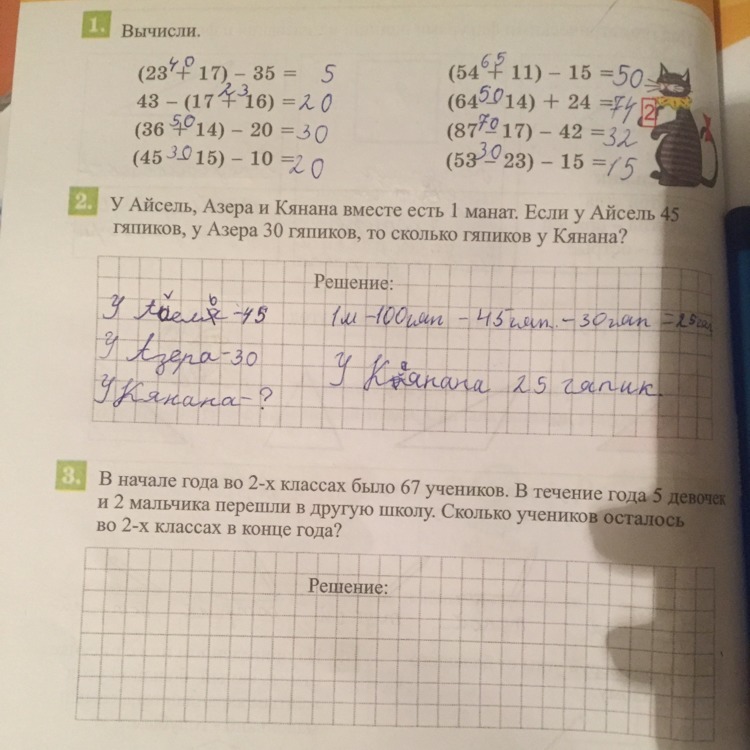 1. Вычисли.
(23 + 17) – 35 = 5
40
43 – (17 + 16) = 20
23
(36 + 14) – 20 = 30
50
(45 – 15) – 10 = 20
30
(54 + 11) – 15 = 50
65
(64 – 14) + 24 = 74
50
(87 – 17) – 42 = 32
70
(53 – 23) – 15 = 15
30
2
2. У Айсель, Азера и Кянана вместе есть 1 манат. Если у Айсель 45
гяпиков, у Азера 30 гяпиков, то сколько гяпиков у Кянана?
Решение:
У -45
У Азера-30
У Кянана-?
1м -100гяп - 45гяп. - 30гяп =25гяп
У Кянана 25 гапик.
3. В начале года во 2-х классах было 67 учеников. В течение года 5 девочек
и 2 мальчика перешли в другую школу. Сколько учеников осталось
во 2-х классах в конце года?
Решение: